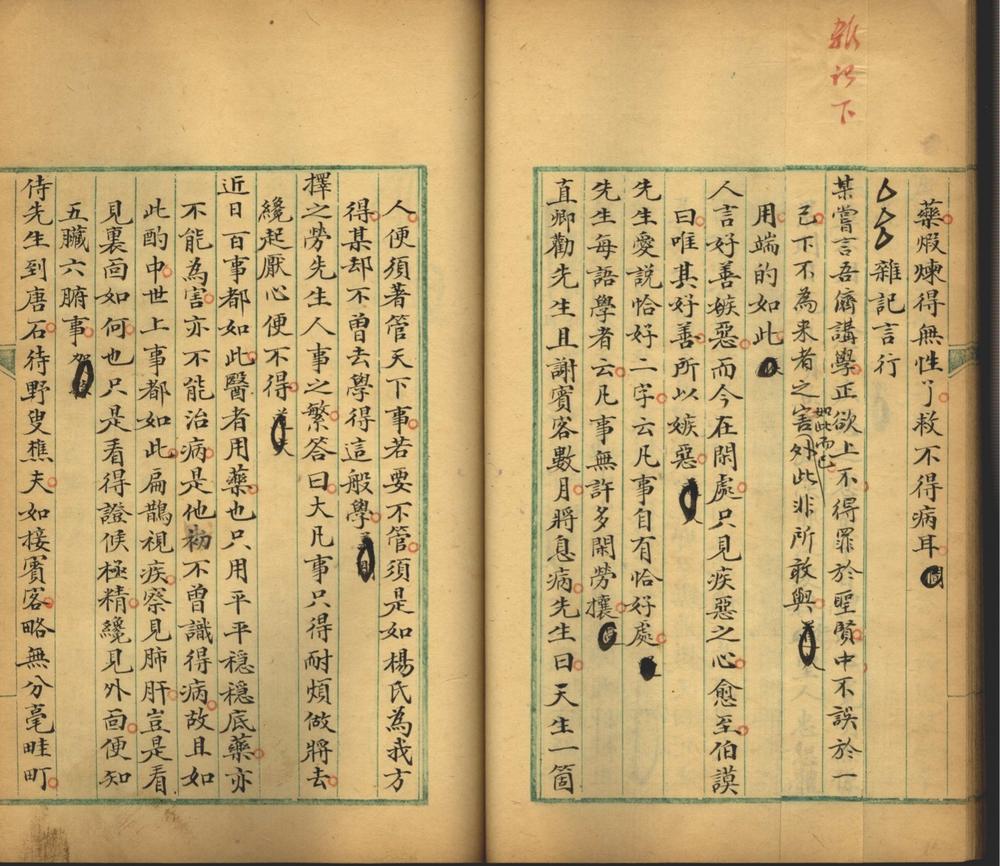 雜記下
藥煅煉得無性了救不得病耳
雜記言行
某嘗言吾儕講學正欲上不得罪於聖賢中不誤於一
己下不為来者之害如此而已外此非所敢與
用端的如此
人言好善嫉惡而今在閑處只見疾惡之心愈至伯謨
曰唯其好善所以嫉惡
先生愛説恰好二字云凡事自有恰好處
先生每語學者云凡事無許多閑勞攘
直卿勸先生且謝賓客數月將息病先生曰天生一箇
人便須著管天下事若要不管須是如楊氏為我方
得某却不曾去學得這般學
擇之勞先生人事之繁答曰大凡事只得耐煩做將去
纔起厭心便不得
近日百事都如此醫者用藥也只用平平穏穏底藥亦
不能為害亦不能治病是他初不曾識得病故且如
此酌中世上事都如此扁鵲視疾察見肺肝豈是看
見裏面如何也只是看得證候極精纔見外面便知
五臟六腑事
侍先生到唐石待野叟樵夫如接賓客略無分毫畦町